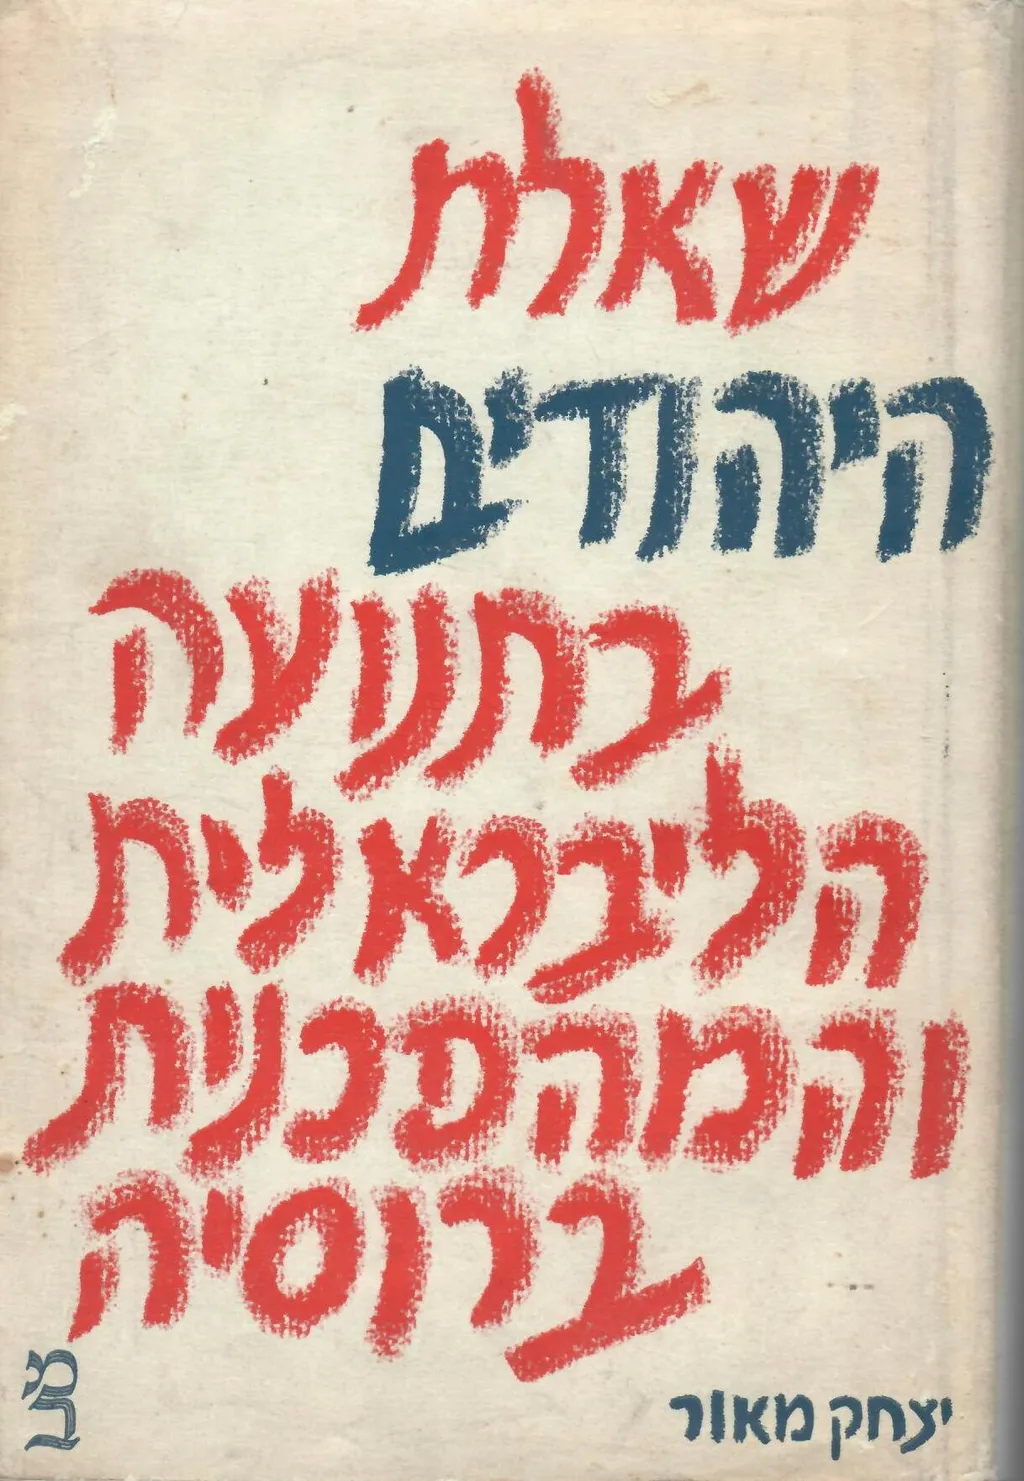 שאלת
היהודים
בתנועה
הליבראלית
והמהפכנית
ברוסיה
יצחק מאור
מ"ב